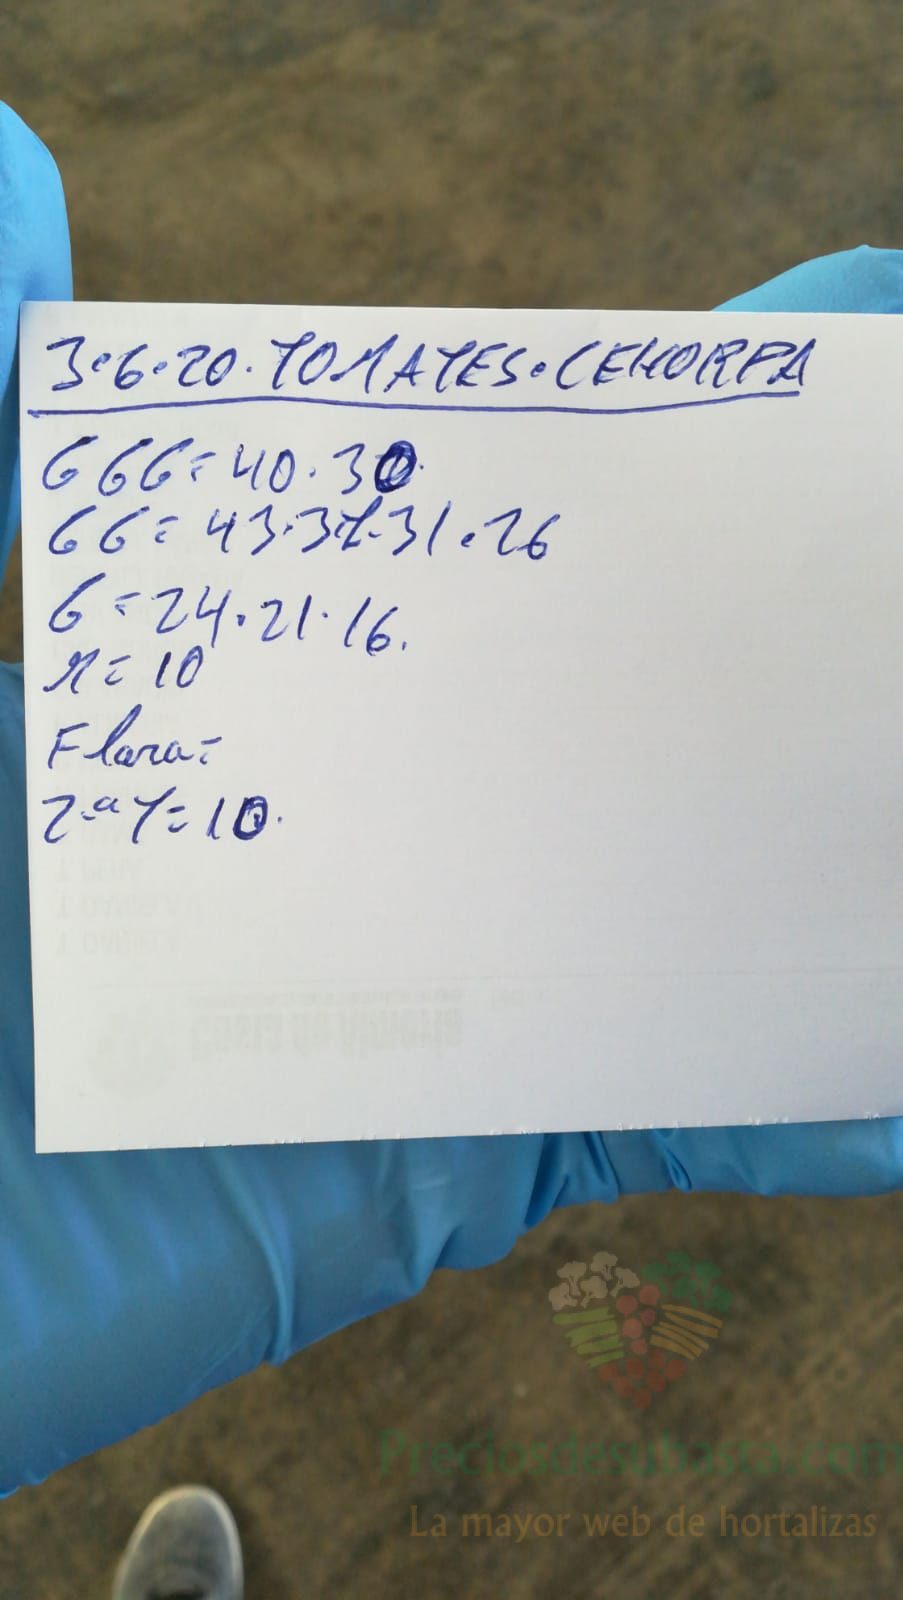 3.6.20.TOMATES.CEHORPA
GGG=40.30.
GG=43.37.31.26
G=24.21.16.
M=10
Flora=
2.ª T=10.
Costa de Almería
Preciosdesubasta.com
La mayor web de hortalizas